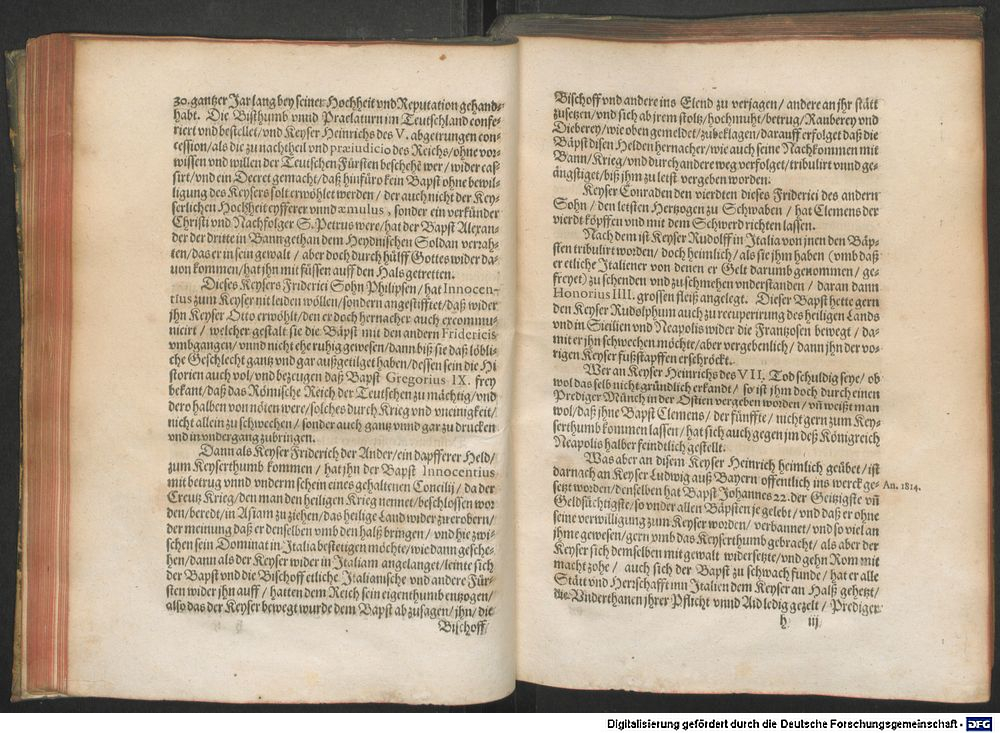 30. gantzer Jar lang bey seiner Hochheit vnd Reputation gehand-
habt. Die Bisthumb vnnd Praelaturn im Teutschland confe-
riert vnd bestellet/ vnd Keyser Heinrichs des V. abgetrungen con-
cession/ als die zu nachtheil vnd præiudicio des Reichs/ ohne vor-
wissen vnd willen der Teutschen Fürsten beschehē wer/ wider cas-
sirt/ vnd ein Decret gemacht/ daß hinfüro kein Bapst ohne bewil-
ligung des Keysers solt erwöhlet werden/ der auch nicht der Key-
serlichen Hochheit eyfferer vnnd æmulus, sonder ein verkünder
Christi vnd Nachfolger S. Petrus were/ hat der Bapst Alexan-
der der dritte in Bann gethan dem Heydnischen Soldan verrah-
ten/ das er in sein gewalt/ aber doch durch hülff Gottes wider da-
uon kommen/ hat jhn mit füssen auff den Hals getretten.
Dieses Keysers Friderici Sohn Philipsen/ hat Innocen-
tius zum Keyser nit leiden wöllen/ sondern angestifftet/ daß wider
jhn Keyser Otto erwöhlt/ den er doch hernacher auch excommu-
nicirt/ welcher gestalt sie die Bäpst mit den andern Fridericis
vmbgangen/ vnnd nicht ehe ruhig gewesen/ dann biß sie daß löbli-
che Geschlecht gantz vnd gar außgetilget haben/ dessen sein die Hi-
storien auch vol/ vnd bezeugen daß Bapst Gregorius IX. frey
bekant/ daß das Römische Reich der Teutschen zu mächtig/ vnd
dero halben von nöten were/ solches durch Krieg vnd vneinigkeit/
nicht allein zu schwechen/ sonder auch gantz vnnd gar zu drucken
vnd in vndergang zubringen.
Dann als Keyser Friderich der Ander/ ein dapfferer Held/
zum Keyserthumb kommen/ hat jhn der Bapst Innocentius
mit betrug vnnd vnderm schein eines gehaltenen Concilij/ da der
Creutz Krieg/ den man den heiligen Krieg nennet/ beschlossen wor
den/ beredt/ in Asiam zu ziehen/ das heilige Land wider zu erobern/
der meinung daß er denselben vmb den halß bringen/ vnd hie zwi-
schen sein Dominat in Italia bestetigen möchte/ wie dann gesche-
hen/ dann als der Keyser wider in Italiam angelanget/ leinte sich
der Bapst vnd die Bischoff etliche Italianische vnd andere Für-
sten wider jhn auff/ hatten dem Reich sein eigenthumb entzogen/
also das der Keyser bewegt wurde dem Bapst abzusagen/ jhn/ die
Bischoff/
Bischoff vnd andere ins Elend zu verjagen/ andere an jhr stätt
zusetzen/ vnd sich ab jrem stoltz/ hochmuht/ betrug/ Rauberey vnd
Dieberey/ wie oben gemeldet/ zubeklagen/ darauff erfolget daß die
Bäpst disen Helden hernacher/ wie auch seine Nachkommen mit
Bann/ Krieg/ vnd durch andere weg verfolget/ tribulirt vnnd ge-
ängstiget/ biß jhm zu letst vergeben worden.
Keyser Conraden den vierdten dieses Friderici des andern
Sohn/ den letsten Hertzogen zu Schwaben/ hat Clemens der
vierdt köpffen vnd mit dem Schwerd richten lassen.
Nach dem ist Keyser Rudolff in Italia von jnen den Bäp-
sten tribulirt worden/ doch heimlich/ als sie jhm haben (vmb daß
er etliche Italiener von denen er Gelt darumb genommen/ ge-
freyet) zu schenden vnd zu schmehen vnderstanden/ daran dann
Honorius IIII. grossen fleiß angelegt. Dieser Bapst hette gern
den Keyser Rudolphum auch zu recuperirung des heiligen Lands
vnd in Sicilien vnd Neapolis wider die Frantzosen bewegt/ da-
mit er jhn schwechen möchte/ aber vergeblich/ dann jhn der vo-
rigen Keyser fußstapffen erschröckt.
Wer an Keyser Heinrichs des VII. Tod schuldig seye/ ob
wol das selb nicht gründlich erkandt/ so ist jhm doch durch einen
Prediger Münch in der Ostien vergeben worden/ vn̄ weißt man
wol/ daß jhne Bapst Clemens/ der fünffte/ nicht gern zum Key-
serthumb kommen lassen/ hat sich auch gegen jm deß Königreich
Neapolis halber feindtlich gestellt.
Was aber an disem Keyser Heinrich heimlich geübet/ ist
darnach an Keyser Ludwig auß Bayern offentlich ins werck ge-
An. 1814.
setzt worden/ denselben hat Bapst Johannes 22. der Geitzigste vn̄
Geldsüchtigste/ so vnder allen Bäpsten je gelebt/ vnd daß er ohne
seine verwilligung zum Keyser worden/ verbannet/ vnd so viel an
jhme gewesen/ gern vmb das Keyserthumb gebracht/ als aber der
Keyser sich demselben mit gewalt widersetzte/ vnd gehn Rom mit
macht zohe/ auch sich der Bapst zu schwach funde/ hat er alle
Stätt vnd Herschafft inn Italien dem Keyser an Halß gehetzt/
die Vnderthanen jhrer Pflicht vnnd Aid ledig gezelt/ Prediger
h iij
Digitalisierung gefördert durch die Deutsche Forschungsgemeinschaft - DFG